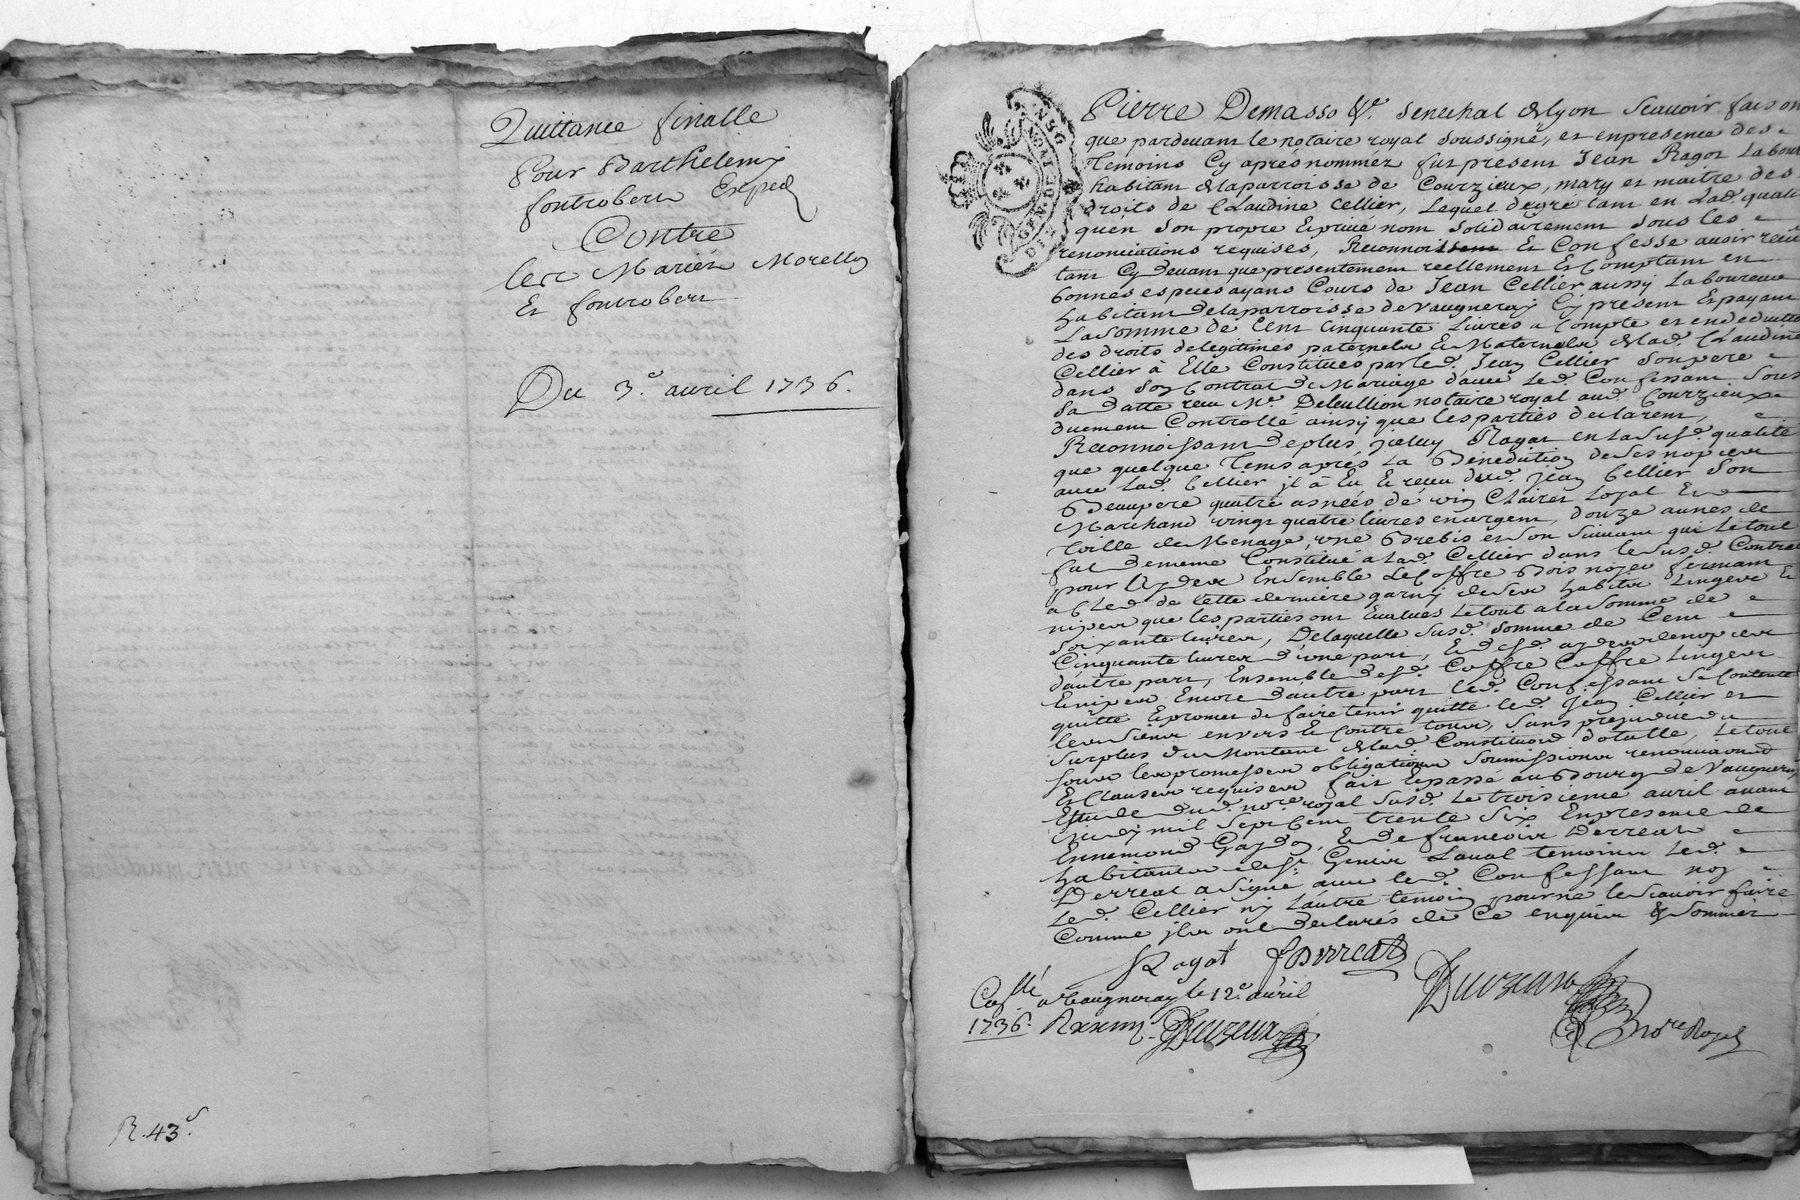 Quittance finalle
Pour Barthelemy
fontrobert Exped
Contre
les Mariés Morellon
Et fontrobert
Du 3.e avril 1736.
R. 43.s
GEN. DE LYON
Pierre Demasso &r. Senechal de lyon Scauoir faison
que pardeuant le notaire royal soussigné, et en presence des
Témoins Cy apres nommez fut present Jean Ragot Labour
habitant de la parroisse de Courzieux, mary et maitre des
droits de Claudine Cellier, Lequel degre tant en Lad. quali
quen Son propre Et priué nom Solidairement Sous les
renonciations requises, Reconnoissant Et Confesse auoir reçû
tant Cy deuant que presentement réellement Et Comptant en
bonnes especes ayans Cours de Jean Cellier aussy Laboureur
habitant de la parroisse de Vaugneray Cy present Et payant
La Somme de Cent Cinquante Livres a Compte et en deduction
des droits de legitimes paternels Et Maternels de lad. Claudine
Cellier à Elle Constitués par led. Jean Cellier Son pere
dans Son Contrat de Mariage d'auec Led. Confessant Sous
Sa datte reçu Me. Deleullion notaire royal aud. Courzieux
duement Controllé ainsy que les parties declarent,
Reconnoissant de plus jceluy Ragot en La Susd. qualité
que quelque Tems apres La Benediction de Ses nopces
auec Lad. Cellier jl à Eu Et reçu dud. Jean Cellier Son
Beaupere quatre asnées de vin Clairet Loyal Et
Marchand vingt quatre livres en argent, douze aunes de
Toille de Menage, une Brebis et Son Suiuant qui Le tout
fut de meme Constitué a lad. Cellier dans le Susd. Contrat
pour Ensemble Le Coffre Bois noyer fermant
a Clef de Cette derniere garny de Ses habits Linges Et
nipes que les parties ont Evalués Le tout a la Somme de
Soixante livres, De laquelle Susd. Somme de Cent
Cinquante livres d'une part, Et desd. de nopces
dautre part, Ensemble desd. Coffre Coffre Linges
Et nipes Encore dautre part Led. Confessant Se Contente
quitte Et promet de faire tenir quitte led. Jean Cellier et
les Siens envers Et Contre tous, Sans prejudice du
Surplus du Montant de lad. Constitution dotalle, Le tout
Sous les promesses obligations Soumissions renonciations
Et Clauses requises fait Et passé au Bourg de Vaugneray
Etude dud. nore. royal Susd. Le troisieme avril avant
Midy mil Sept Cent trente Six En presence de
Ennemond Gaydon, Et de francois Derreat
habitants de St. Genis Laual temoins Led.
Derreat a Signé auec led. Confessant non
Led. Cellier ny Lautre temoin pour ne le Scauoir faire
Comme jls ont declarés de Ce enquis & Sommés
Ragot fDerreat
Duvzeau
nore Royal
Collé a Vaugneray le 12.e avril
1736.